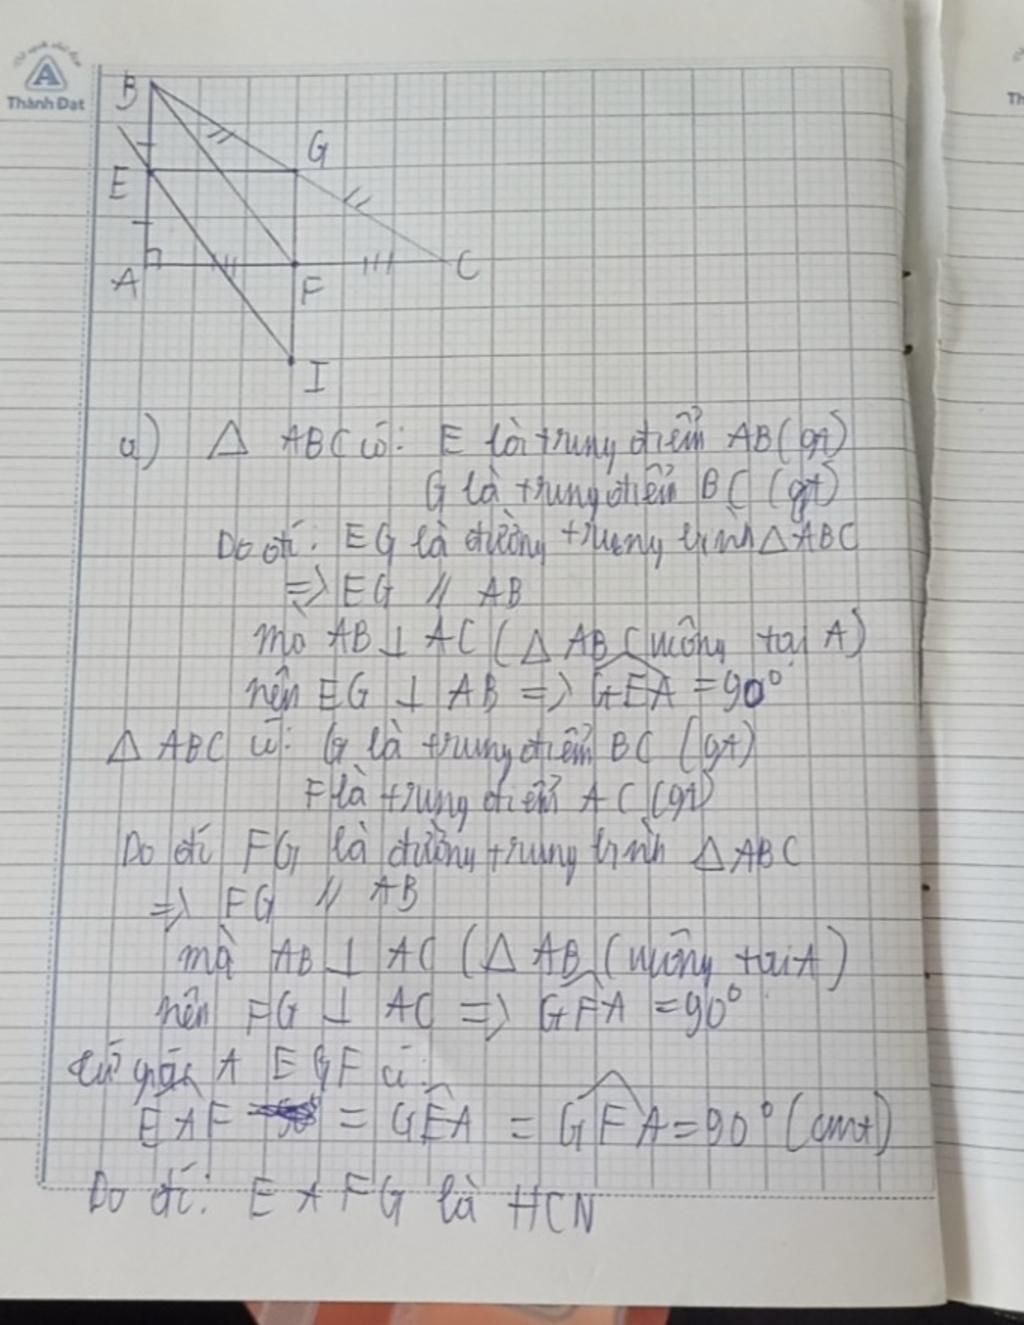 A
Thành Đạt
Th
B
G
E
A
F
C
I
a) Δ ABC có: E là trung điểm AB (gt)
G là trung điểm BC (gt)
Do đó: EG là đường trung bình Δ ABC
=> EG // AB
mà AB ⊥ AC (Δ ABC vuông tại A)
nên EG ⊥ AB => GEA = 90°
Δ ABC có: G là trung điểm BC (gt)
F là trung điểm AC (gt)
Do đó FG là đường trung bình Δ ABC
=> FG // AB
mà AB ⊥ AC (Δ ABC vuông tại A)
nên FG ⊥ AC => GFA = 90°
tứ giác A E G F có:
EAF = GEA = GFA = 90° (cmt)
Do đó: E A F G là HCN